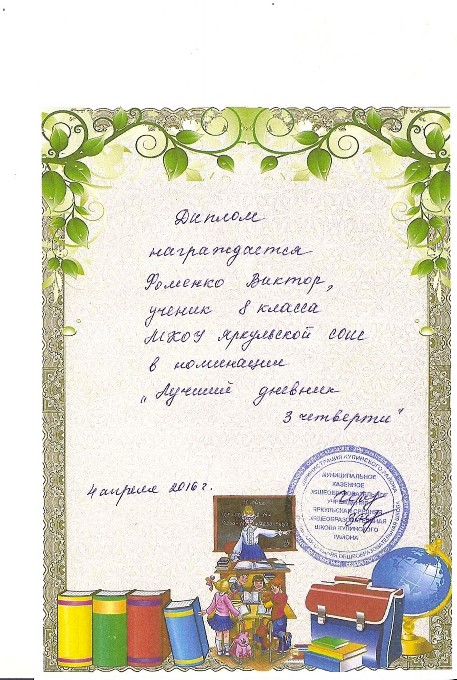 Диплом
награждается
Фоменко Виктор,
ученик 8 класса
МКОУ Яркульской СОШ
в номинации
„Лучший дневник
3 четверти"
4 апреля 2016 г.
АДМИНИСТРАЦИЯ КУПИНСКОГО РАЙОНА
МУНИЦИПАЛЬНОЕ
КАЗЕННОЕ
ОБЩЕОБРАЗОВАТЕЛЬНОЕ
УЧРЕЖДЕНИЕ
ЯРКУЛЬСКАЯ СРЕДНЯЯ
ОБЩЕОБРАЗОВАТЕЛЬНАЯ
ШКОЛА КУПИНСКОГО
РАЙОНА